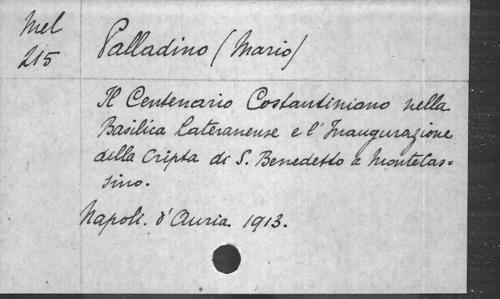 Mel
215
Palladino (Mario)
Il Centenario Costantiniano nella
Basilica Lateranense e l'Inaugurazione
della Cripta di S. Benedetto a Montecas-
sino.
Napoli. d'Auria. 1913.